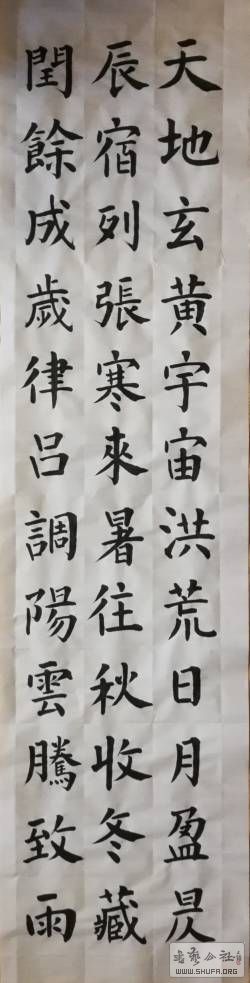 天地玄黄宇宙洪荒日月盈昃
辰宿列張寒來暑往秋收冬藏
閏餘成歲律呂調陽雲騰致雨
WWW.SHUFA.ORG